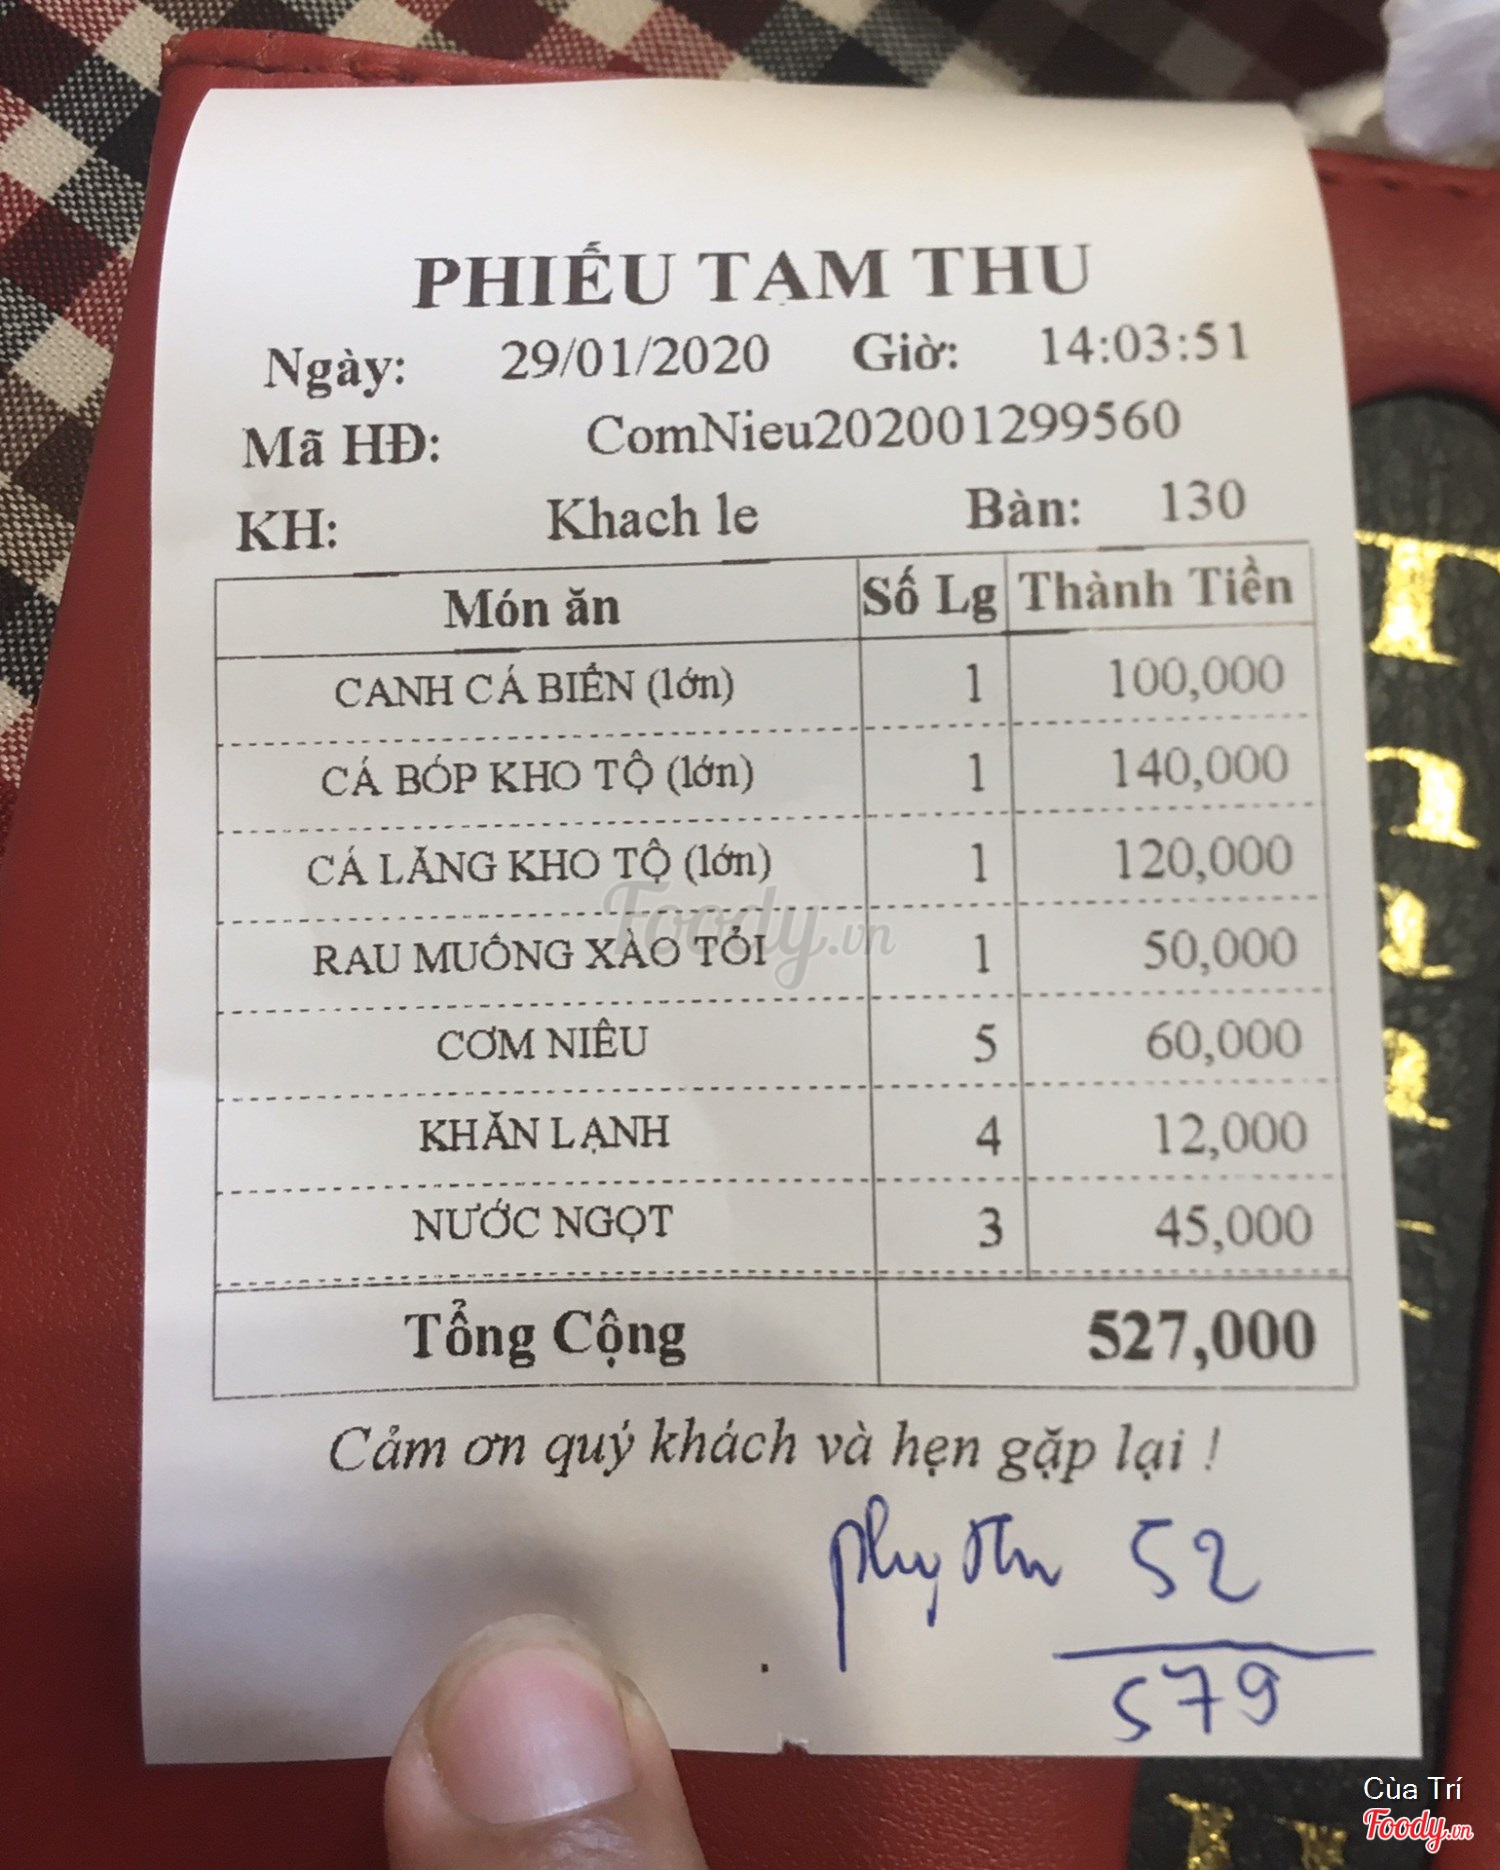 PHIẾU TẠM THU
Ngày: 29/01/2020 Giờ: 14:03:51
Mã HĐ: ComNieu202001299560
KH: Khach le Bàn: 130
Món ăn Số Lg Thành Tiền
CANH CÁ BIỂN (lớn) 1 100,000
CÁ BÓP KHO TỘ (lớn) 1 140,000
CÁ LĂNG KHO TỘ (lớn) 1 120,000
RAU MUỐNG XÀO TỎI 1 50,000
CƠM NIÊU 5 60,000
KHĂN LẠNH 4 12,000
NƯỚC NGỌT 3 45,000
Tổng Cộng 527,000
Cảm ơn quý khách và hẹn gặp lại !
phụ thu 52
579
Foody.vn
Cùa Trí
Foody.vn